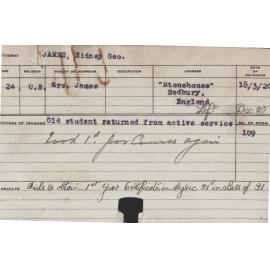 JAMES, Sidney Geo.
AGE RELIGION PARENT OR GUARDIAN OCCUPATION ADDRESS DATE OF ENTRANCE
24. C.E. Mrs. James "Stonehouse" 18/3/20
Sodbury,
England.
Left Dec 20
COURSE OF TRAINING Old student returned from active service NO. OF ROOM
Took 1st Year Course again 109
RESULTS Fails to obtain 1st Year Certificate in Agric 21st in class of 31